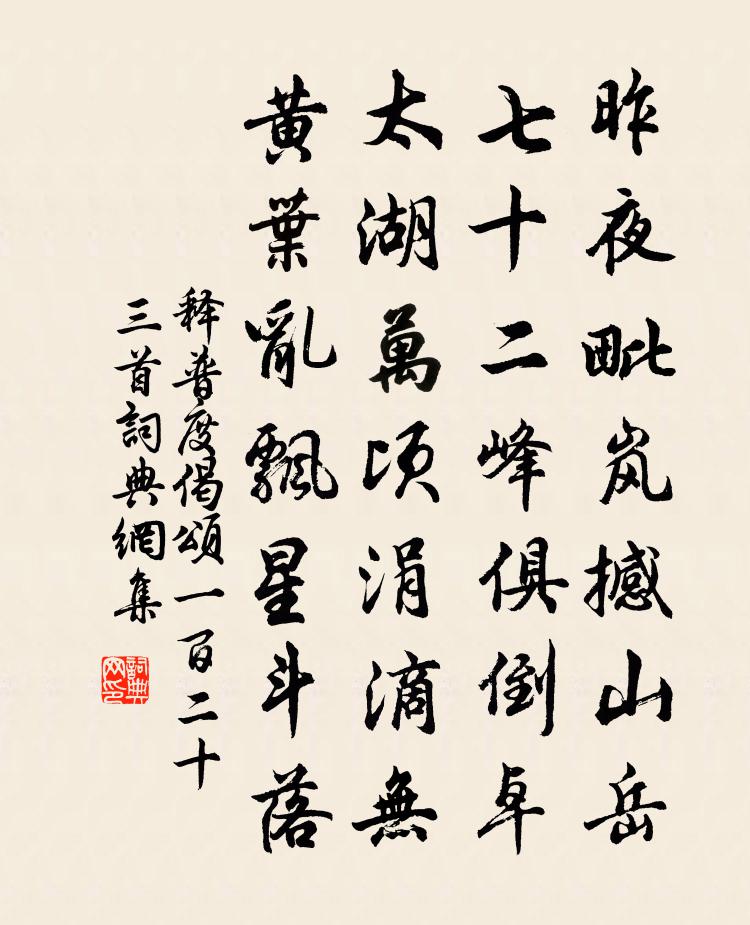 昨夜毗岚撼山岳
七十二峰俱倒卓
太湖萬頃涓滴無
黃葉亂飄星斗落
释普度偈頌一百二十
三首詞典網集
詞典网印